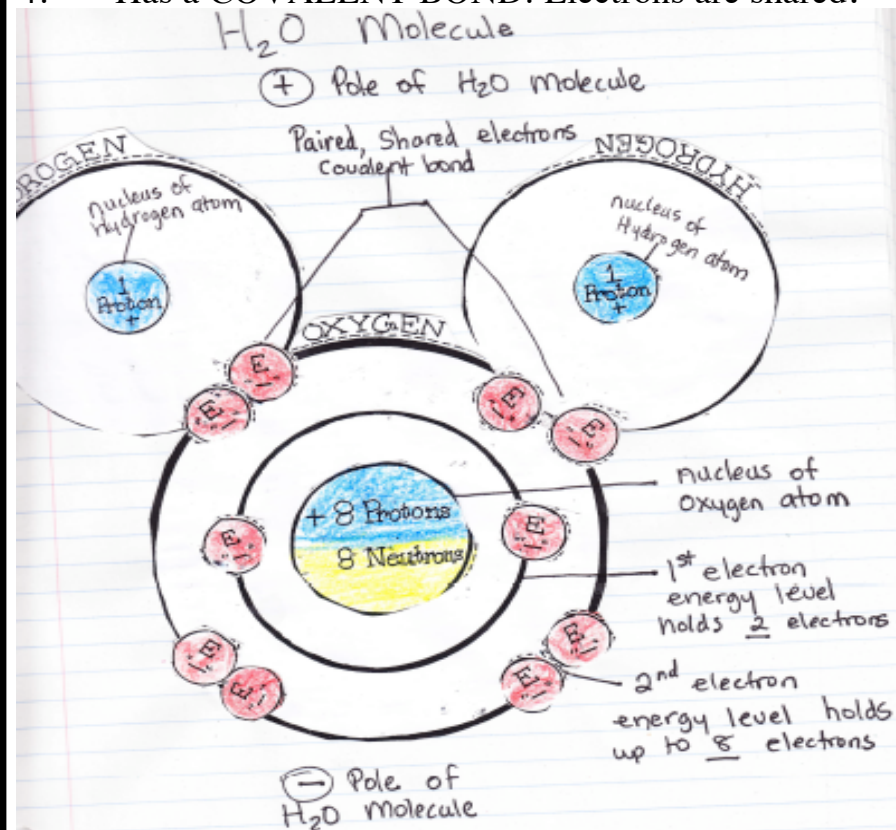 Has a COVALENT BOND. Electrons are shared.
H₂O Molecule
(+) Pole of H₂O molecule
Paired, Shared electrons
Covalent bond
ROGEN
HYDROGEN
nucleus of
Hydrogen atom
nucleus of
Hydrogen atom
1
Proton
+
1
Proton
+
OXYGEN
E
-
E
-
E
-
E
-
nucleus of
Oxygen atom
+ 8 Protons
8 Neutrons
E
-
E
-
1st electron
energy level
holds 2 electrons
E
-
E
-
E
-
E
-
2nd electron
energy level holds
up to 8 electrons
(-) Pole of
H₂O Molecule